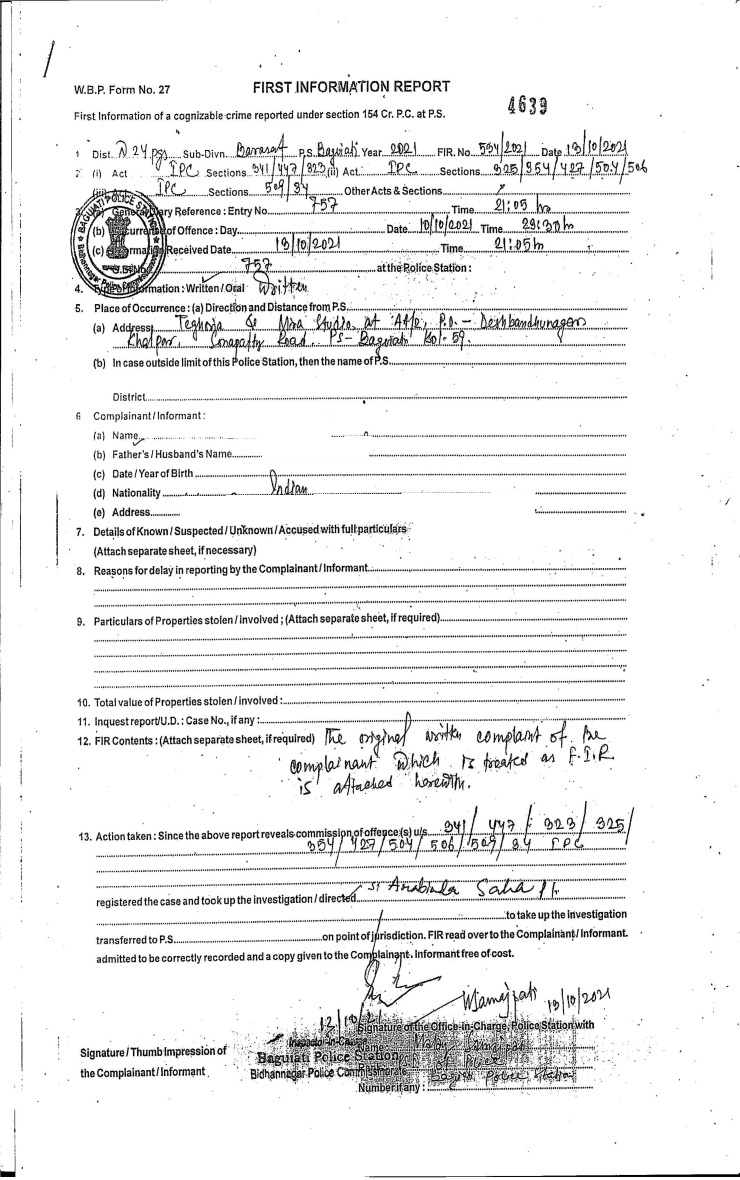 W.B.P. Form No. 27 FIRST INFORMATION REPORT
4639
First Information of a cognizable crime reported under section 154 Cr. P.C. at P.S.
1 Dist. N 24 Pgs Sub-Divn. Barasat P.S. Baguiati Year 2021 FIR. No. 534/2021 Date 13/10/2021
2 (i) Act IPC Sections 341/447/323 (ii) Act. IPC Sections 325/354/427/504/506
(iii) Act IPC Sections 509/34 Other Acts & Sections
3. (a) General Diary Reference : Entry No. 757 Time 21:05 hr
(b) Occurrence of Offence : Day Date 10/10/2021 Time 23:30 h
(c) Information Received Date 13/10/2021 Time 21:05 h
757 at the Police Station :
BAGUIATI POLICE STATION
4. Type of Information : Written / Oral Written
5. Place of Occurrence : (a) Direction and Distance from P.S.
(a) Address Teghoria at P.O. - Deshbandhunagar
Road. PS - Baguiati Kol- 59.
(b) In case outside limit of this Police Station, then the name of P.S.
District
6 Complainant / Informant :
(a) Name
(b) Father's / Husband's Name
(c) Date / Year of Birth
(d) Nationality Indian
(e) Address
7. Details of Known / Suspected / Unknown / Accused with full particulars
(Attach separate sheet, if necessary)
8. Reasons for delay in reporting by the Complainant / Informant
9. Particulars of Properties stolen / involved ; (Attach separate sheet, if required)
10. Total value of Properties stolen / involved :
11. Inquest report/U.D. : Case No., if any :
12. FIR Contents : (Attach separate sheet, if required) The original written complaint of the
complainant which is treated as F.I.R
is attached herewith.
13. Action taken : Since the above report reveals commission of offence(s) u/s 341/ 447/ 323/ 325/
354/427/504/506/509/34 IPC
registered the case and took up the investigation / directed SI Saha
to take up the investigation
transferred to P.S. on point of jurisdiction. FIR read over to the Complainant / Informant.
admitted to be correctly recorded and a copy given to the Complainant. Informant free of cost.
19/10/2021
Signature of the Office-in-Charge, Police Station with
Signature / Thumb Impression of
the Complainant / Informant
Inspector-in-Charge
Baguiati Police Station
Bidhannagar Police Commissionerate
Name
of Police
Baguiati Police Station
Number if any :